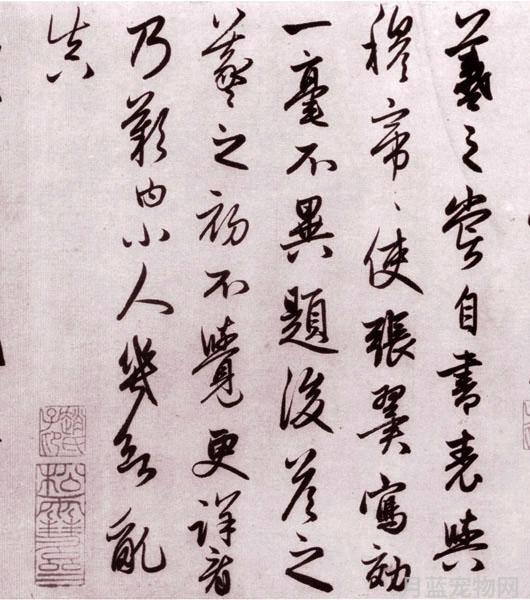 羲之嘗自書表與
穆帝〻使張翼寫効
一毫不異題後答之
羲之初不覺更詳看
乃歎曰小人幾欲亂
真
松雪齋
月蓝宠物网